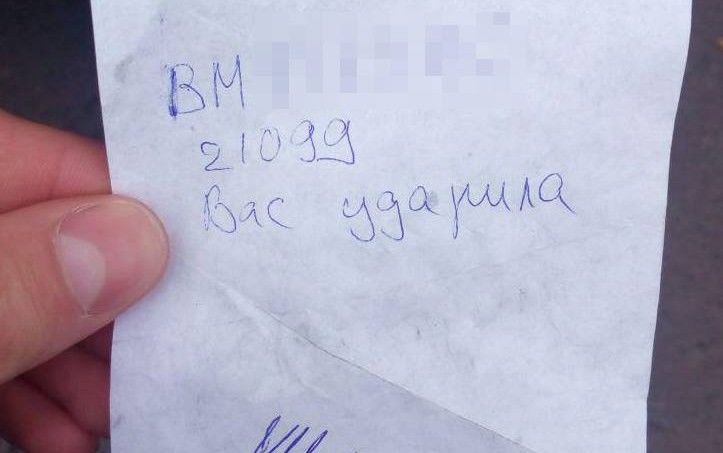 ВМ
21099
Вас ударила